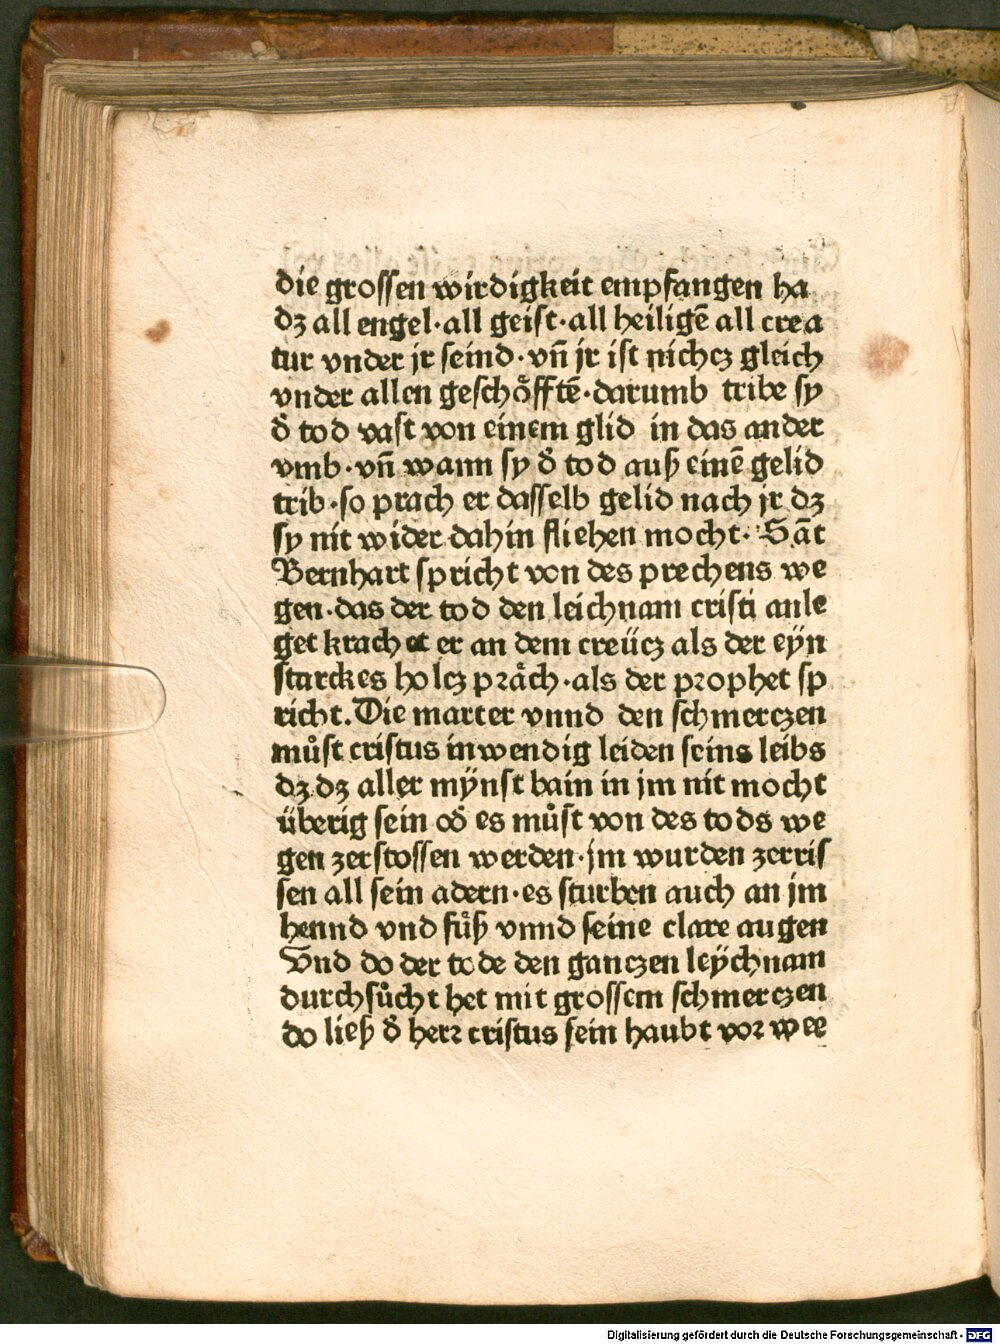 die grossen wirdigkeit empfangen ha
dz all engel·all geist·all heiligē all crea
tur vnder jr seind·vn̄ jr ist nichcz gleich
vnder allen geschoͤfftē·darumb tribe sy
d̓ tod vast von einem glid in das ander
vmb·vn̄ wann sy d̓ tod auß einē gelid
trib·so prach er dasselb gelid nach jr dz
sy nit wider dahin fliehen mocht· Sāt
Bernhart spricht von des prechens we
gen·das der tod den leichnam cristi anle
get krachet er an dem creücz als der eyn
starckes holcz praͤch·als der prophet sp
richt. Die marter vnnd den schmerczen
muͦst cristus inwendig leiden seins leibs
dz dz aller mÿnst bain in jm nit mocht
überig sein od̓ es muͦst von des tods we
gen zerstossen werden·jm wurden zerris
sen all sein adern·es sturben auch an jm
hennd vnd fuͤß vnnd seine clare augen
Vnd do der tode den ganczen leÿchnam
durchsuͦcht het mit grossem schmerczen
do ließ d̓ herr cristus sein haubt vor wee
Digitalisierung gefördert durch die Deutsche Forschungsgemeinschaft - DFG